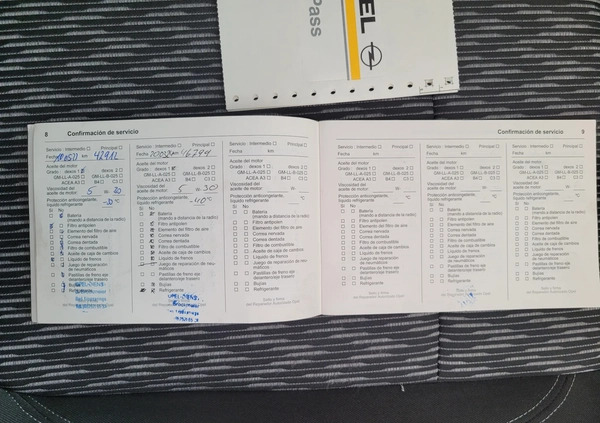 OPEL
Pass
8 Confirmación de servicio
Servicio - Intermedio Principal
Fecha km 42912
Aceite del motor
Grado: dexos 1 dexos 2
GM-LL-A-025 GM-LL-B-025
ACEA A3 B4 C3
Viscosidad del
aceite de motor: 5 W 30
Protección anticongelante,
líquido refrigerante
Sí No
Batería
(mando a distancia de la radio)
Filtro antipolen
Elemento del filtro de aire
Correa nervada
Correa dentada
Filtro de combustible
Aceite de caja de cambios
Líquido de frenos
Juego de reparación
de neumáticos
Pastillas de freno eje
delantero/eje trasero
Bujías
Servicio - Intermedio Principal
Fecha km 46244
Aceite del motor
Grado: dexos 1 dexos 2
GM-LL-A-025 GM-LL-B-025
ACEA A3 B4 C3
Viscosidad del
aceite de motor: 5 W 30
Protección anticongelante,
líquido refrigerante -40°C
Sí No
Batería
(mando a distancia de la radio)
Filtro antipolen
Elemento del filtro de aire
Correa nervada
Correa dentada
Filtro de combustible
Aceite de caja de cambios
Líquido de frenos
Juego de reparación de neu-
máticos
Pastillas de freno eje
delantero/eje trasero
Bujías
Refrigerante
Servicio - Intermedio Principal
Fecha km
Aceite del motor
Grado: dexos 1 dexos 2
GM-LL-A-025 GM-LL-B-025
ACEA A3 B4 C3
Viscosidad del
aceite de motor: W-
Protección anticongelante,
líquido refrigerante °C
Sí No
Batería
(mando a distancia de la radio)
Filtro antipolen
Elemento del filtro de aire
Correa nervada
Correa dentada
Filtro de combustible
Aceite de caja de cambios
Líquido de frenos
Juego de reparación de neu-
máticos
Pastillas de freno eje
delantero/eje trasero
Bujías
Refrigerante
Sello y firma
del Reparador Autorizado Opel
Confirmación de servicio 9
Servicio - Intermedio Principal
Fecha km
Aceite del motor
Grado: dexos 1 dexos 2
GM-LL-A-025 GM-LL-B-025
ACEA A3 B4 C3
Viscosidad del
aceite de motor: W-
Protección anticongelante,
líquido refrigerante °C
Sí No
Batería
(mando a distancia de la radio)
Filtro antipolen
Elemento del filtro de aire
Correa nervada
Correa dentada
Filtro de combustible
Aceite de caja de cambios
Líquido de frenos
Juego de reparación
de neumáticos
Pastillas de freno eje
delantero/eje trasero
Bujías
Refrigerante
Sello y firma
del Reparador Autorizado Opel
Servicio - Intermedio Principal
Fecha km
Aceite del motor
Grado: dexos 1 dexos 2
GM-LL-A-025 GM-LL-B-025
ACEA A3 B4 C3
Viscosidad del
aceite de motor: W-
Protección anticongelante,
líquido refrigerante °C
Sí No
Batería
(mando a distancia de la radio)
Filtro antipolen
Elemento del filtro de aire
Correa nervada
Correa dentada
Filtro de combustible
Aceite de caja de cambios
Líquido de frenos
Juego de reparación
de neumáticos
Pastillas de freno eje
delantero/eje trasero
Bujías
Refrigerante
Sello y firma
del Reparador Autorizado Opel
Servicio - Intermedio Principal
Fecha km
Aceite del motor
Grado: dexos 1 dexos 2
GM-LL-A-025 GM-LL-B-025
ACEA A3 B4 C3
Viscosidad del
aceite de motor: W-
Protección anticongelante,
líquido refrigerante °C
Sí No
Batería
(mando a distancia de la radio)
Filtro antipolen
Elemento del filtro de aire
Correa nervada
Correa dentada
Filtro de combustible
Aceite de caja de cambios
Líquido de frenos
Juego de reparación de neu-
máticos
Pastillas de freno eje
delantero/eje trasero
Bujías
Refrigerante
Sello y firma
del Reparador Autorizado Opel